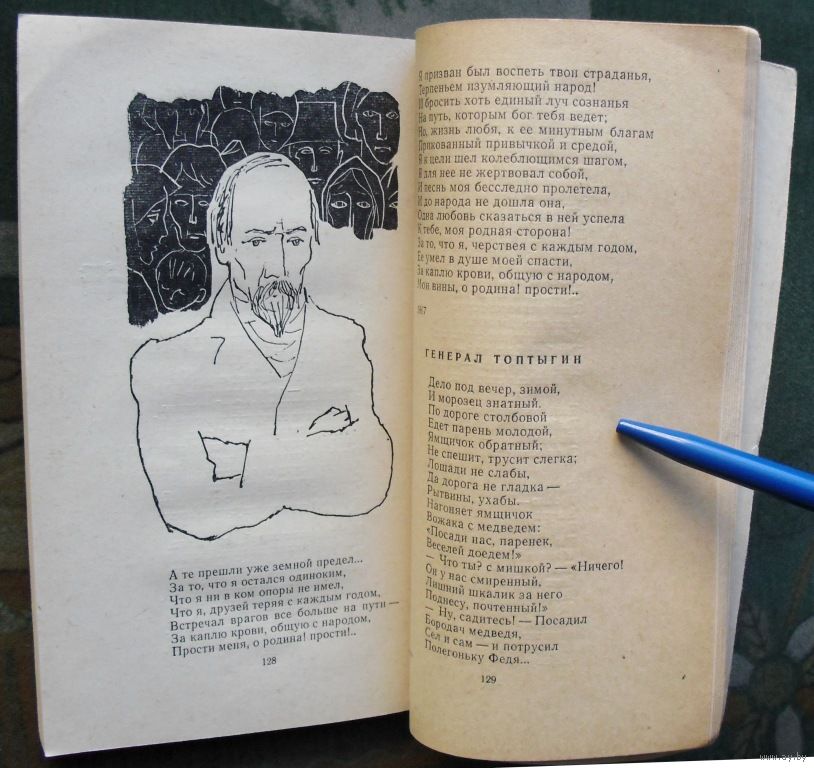 А те прешли уже земной предел...
За то, что я остался одиноким,
Что я ни в ком опоры не имел,
Что я, друзей теряя с каждым годом,
Встречал врагов все больше на пути —
За каплю крови, общую с народом,
Прости меня, о родина! прости!..
128
Я призван был воспеть твои страданья,
Терпеньем изумляющий народ!
И бросить хоть единый луч сознанья
На путь, которым бог тебя ведет;
Но, жизнь любя, к ее минутным благам
Прикованный привычкой и средой,
Я к цели шел колеблющимся шагом,
Я для нее не жертвовал собой,
И песнь моя бесследно пролетела,
И до народа не дошла она,
Одна любовь сказаться в ней успела
К тебе, моя родная сторона!
За то, что я, черствея с каждым годом,
Ее умел в душе моей спасти,
За каплю крови, общую с народом,
Мои вины, о родина! прости!..
867
ГЕНЕРАЛ ТОПТЫГИН
Дело под вечер, зимой,
И морозец знатный.
По дороге столбовой
Едет парень молодой,
Ямщичок обратный;
Не спешит, трусит слегка;
Лошади не слабы,
Да дорога не гладка —
Рытвины, ухабы.
Нагоняет ямщичок
Вожака с медведем:
«Посади нас, паренек,
Веселей доедем!»
— Что ты? с мишкой? — «Ничего!
Он у нас смиренный,
Лишний шкалик за него
Поднесу, почтенный!»
— Ну, садитесь! — Посадил
Бородач медведя,
Сел и сам — и потрусил
Полегоньку Федя...
129
www.ay.by